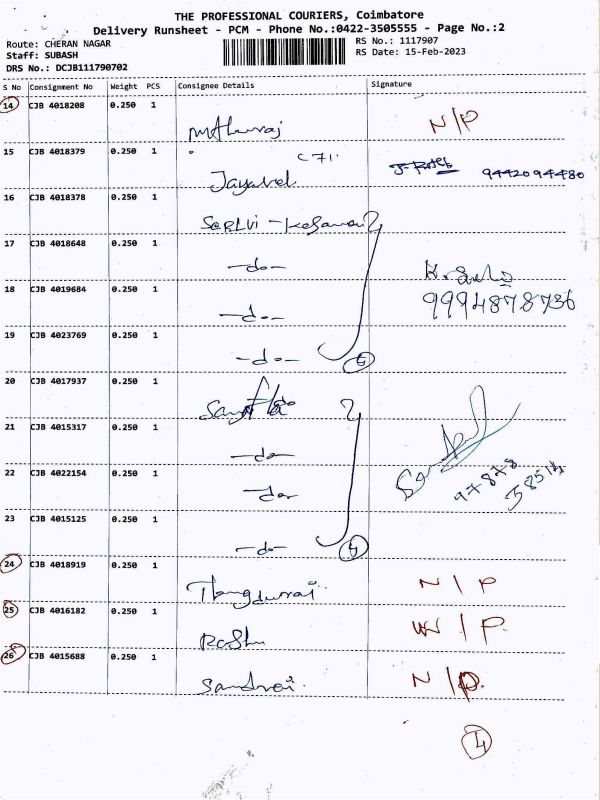 THE PROFESSIONAL COURIERS, Coimbatore
Delivery Runsheet - PCM - Phone No.:0422-3505555 - Page No.:2
Route: CHERAN NAGAR
Staff: SUBASH
DRS No.: DCJB111790702
RS No.: 1117907
RS Date: 15-Feb-2023
S No Consignment No Weight PCS Consignee Details Signature
14 CJB 4018208 0.250 1 N/P
15 CJB 4018379 0.250 1 Jayavel 9442094480
16 CJB 4018378 0.250 1
17 CJB 4018648 0.250 1 -do-
18 CJB 4019684 0.250 1 -do- 9994878736
19 CJB 4023769 0.250 1 -do-
20 CJB 4017937 0.250 1
21 CJB 4015317 0.250 1 -do-
22 CJB 4022154 0.250 1 -do-
23 CJB 4015125 0.250 1 -do-
24 CJB 4018919 0.250 1 Thangdurai N/P
25 CJB 4016182 0.250 1
26 CJB 4015688 0.250 1 N/P